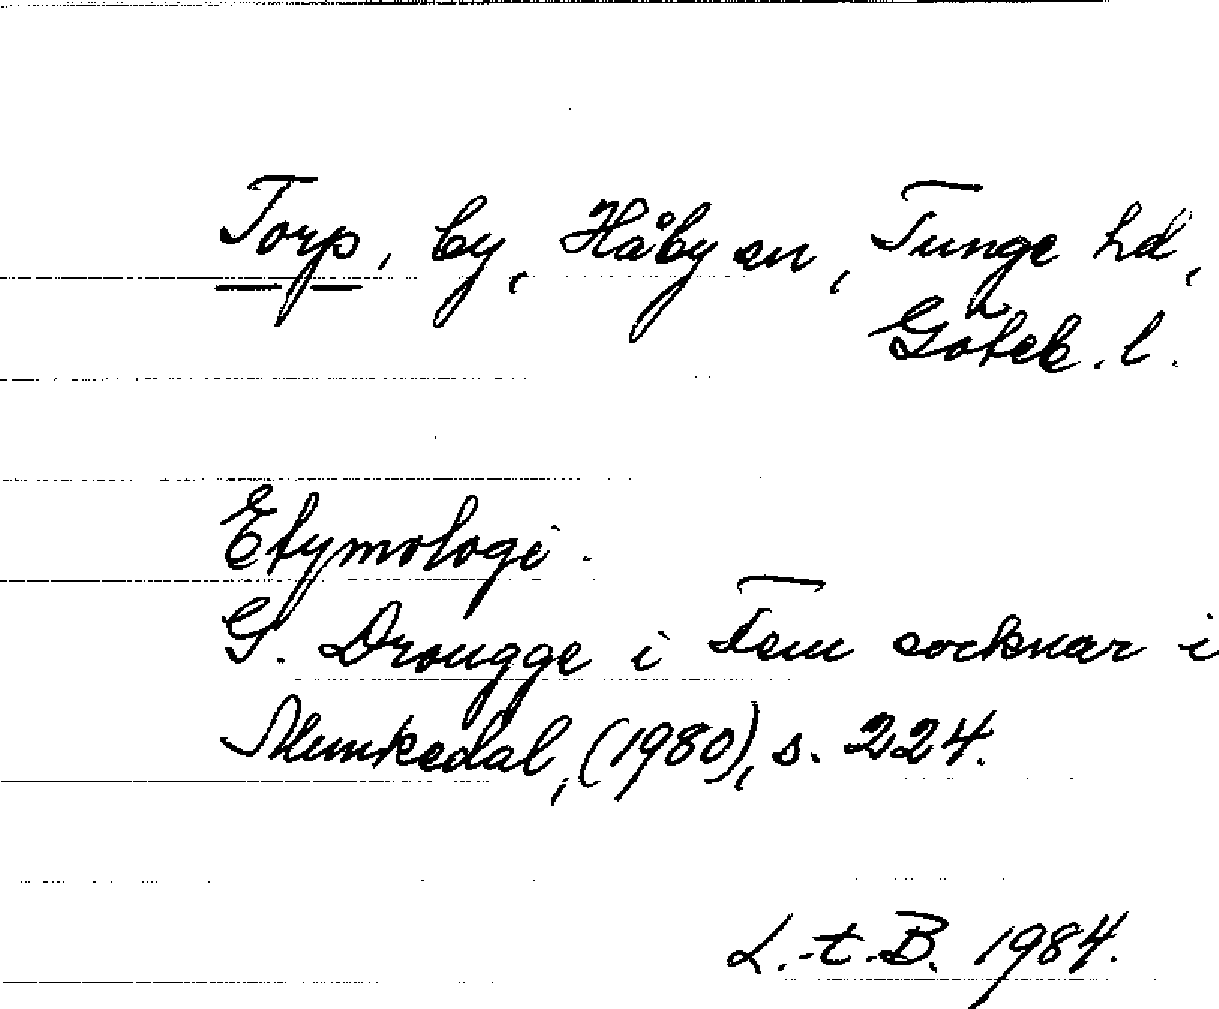 Torp, by, Håby sn, Tunge hd,
Göteb. l.
Etymologi.
G. Drougge i Fem socknar i
Munkedal, (1980), s. 224.
L.-t.-B. 1984.